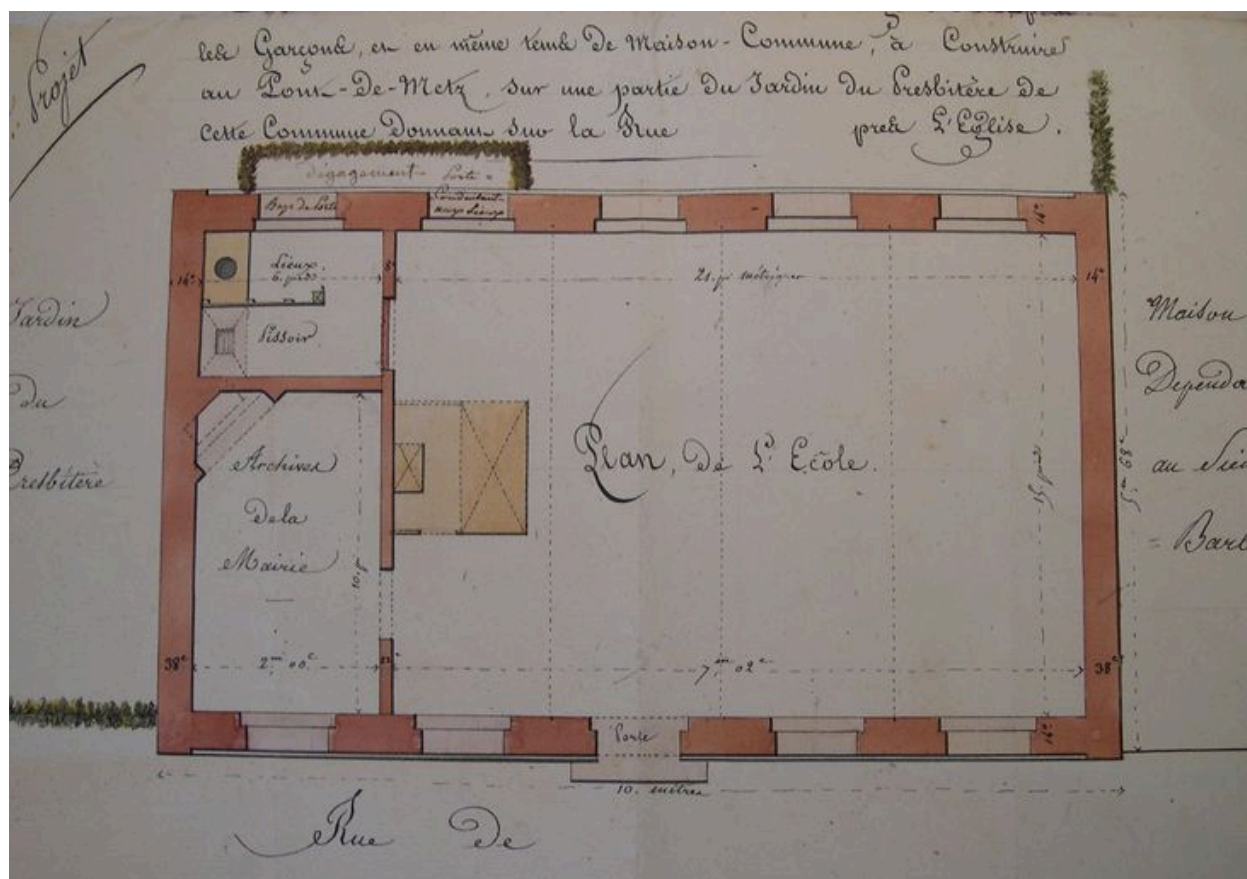 Projet
les Garçons, et en même tems De Maison-Commune, à Construire
au Pont-De-Metz, sur une partie Du Jardin Du Presbitère De
Cette Commune Donnant sur la Rue près L'Eglise.
Dégagement
Porte
Conduisant
aux Lieux
Baye de Porte
14°
Lieux.
6. pieds
8°
21. pi métriques
14°
16°
Pissoir
Jardin
Du
Presbitère
Archives
De la
Mairie
10. p
Plan, De L'Ecole.
15. pieds
5.m 68c
Maison
Dépenda
au Sieu
= Barb
38c
2.m 00c
22c
7.m 02c
38c
16°
Porte
10. mètres
Rue De